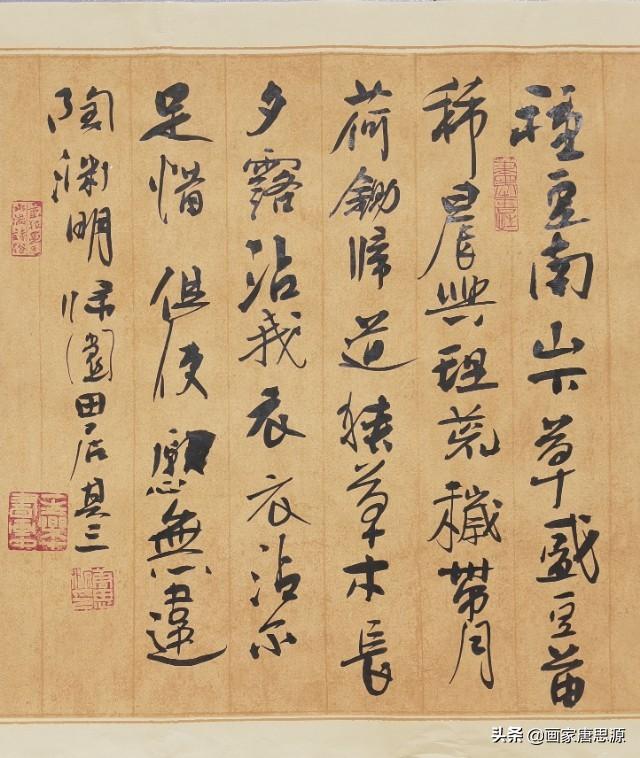 種豆南山下草盛豆苗
稀晨興理荒穢帶月
荷鋤歸道狹草木長
夕露沾我衣衣沾不
足惜但使願無違
陶淵明歸園田居其三
头条 @画家唐思源